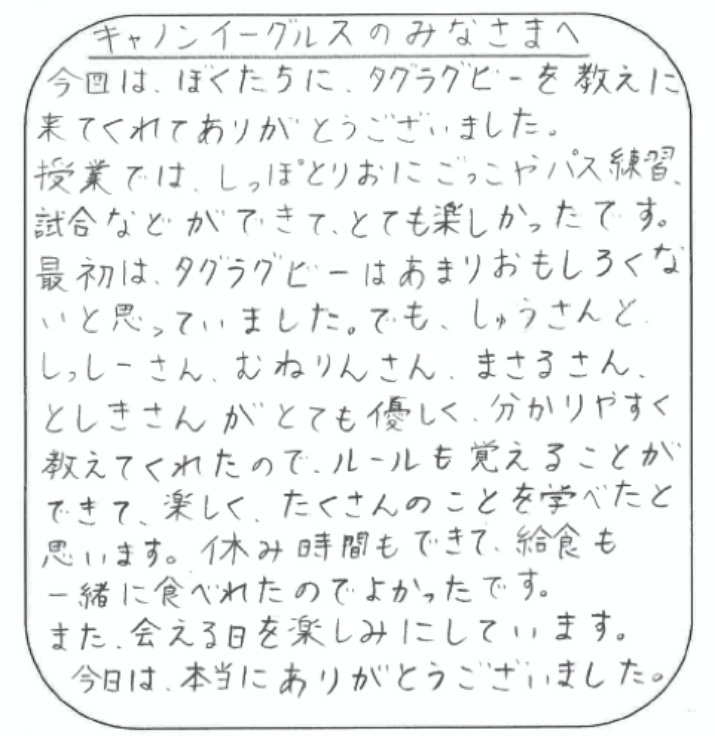 キャノンイーグルスのみなさまへ
今回は、ぼくたちに、タグラグビーを教えに
来てくれてありがとうございました。
授業では、しっぽとりおにごっこやパス練習、
試合などができて、とても楽しかったです。
最初は、タグラグビーはあまりおもしろくな
いと思っていました。でも、しゅうさんと、
しっしーさん、むねりんさん、まさるさん、
としきさんがとても優しく、分かりやすく
教えてくれたので、ルールも覚えることが
できて、楽しく、たくさんのことを学べたと
思います。休み時間もできて、給食も
一緒に食べれたのでよかったです。
また、会える日を楽しみにしています。
今日は、本当にありがとうございました。